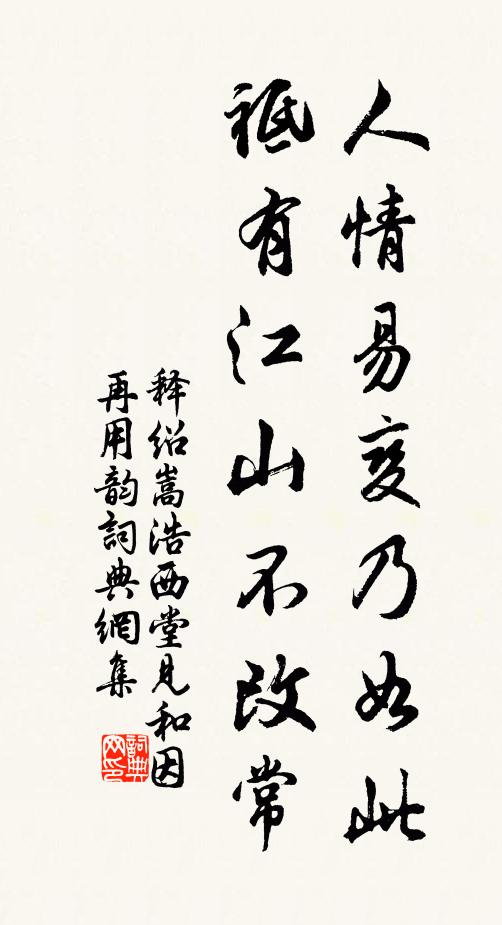 人情易变乃如此
祗有江山不改常
释绍嵩浩西堂见和因
再用韵词典网集
詞典網印